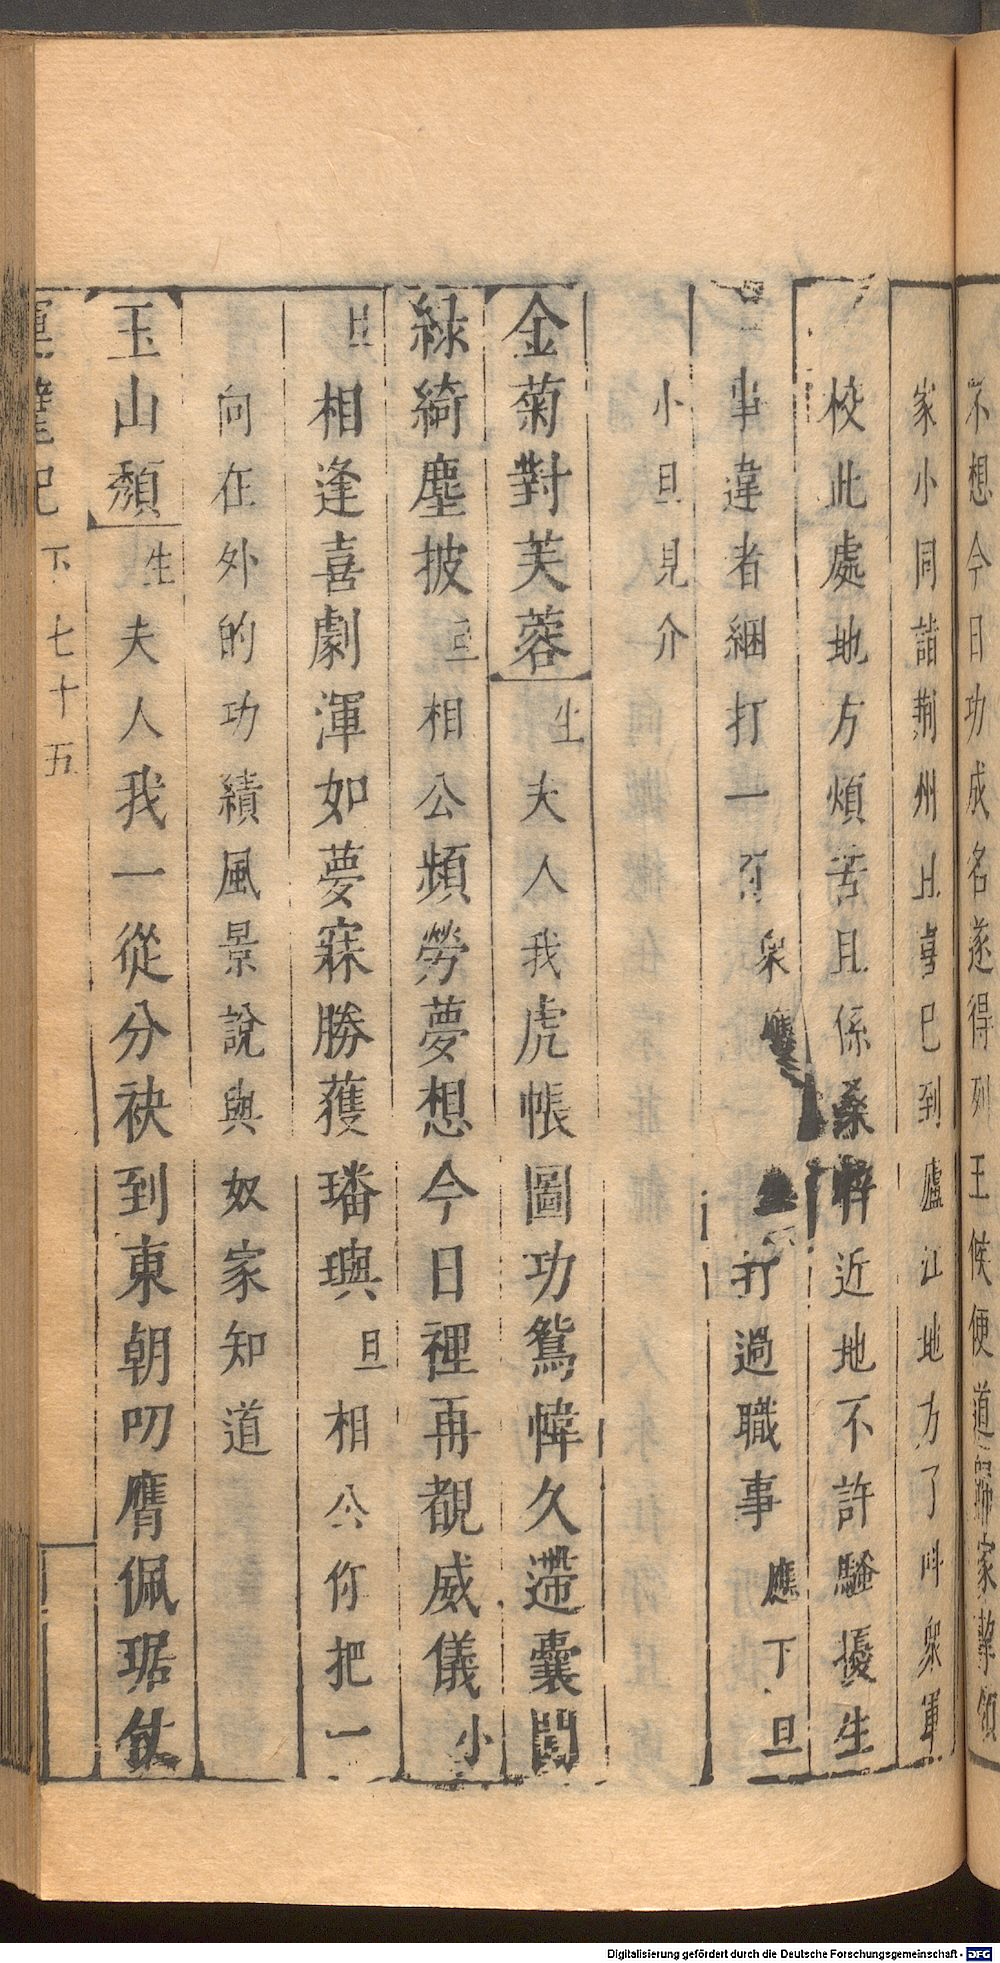 不想今日功成名遂得列王候便道歸家挈領
家小同詣荆州且喜巳到廬江地方了叫衆軍
校此處地方煩苦且係桑梓近地不許騷擾生
事違者綑打一百衆應 打過職事應下旦
小旦見介
金菊對芙蓉生夫人我虎帳圖功鴛幃久滯囊閟
綠綺塵披旦相公頻勞夢想今日裡再覩威儀小
旦相逢喜劇渾如夢寐勝獲璠璵旦相公你把一
向在外的功績風景說與奴家知道
玉山頹生夫人我一從分袂到東朝叨膺佩琚仗
運甓記 下 七十五
Digitalisierung gefördert durch die Deutsche Forschungsgemeinschaft - DFG